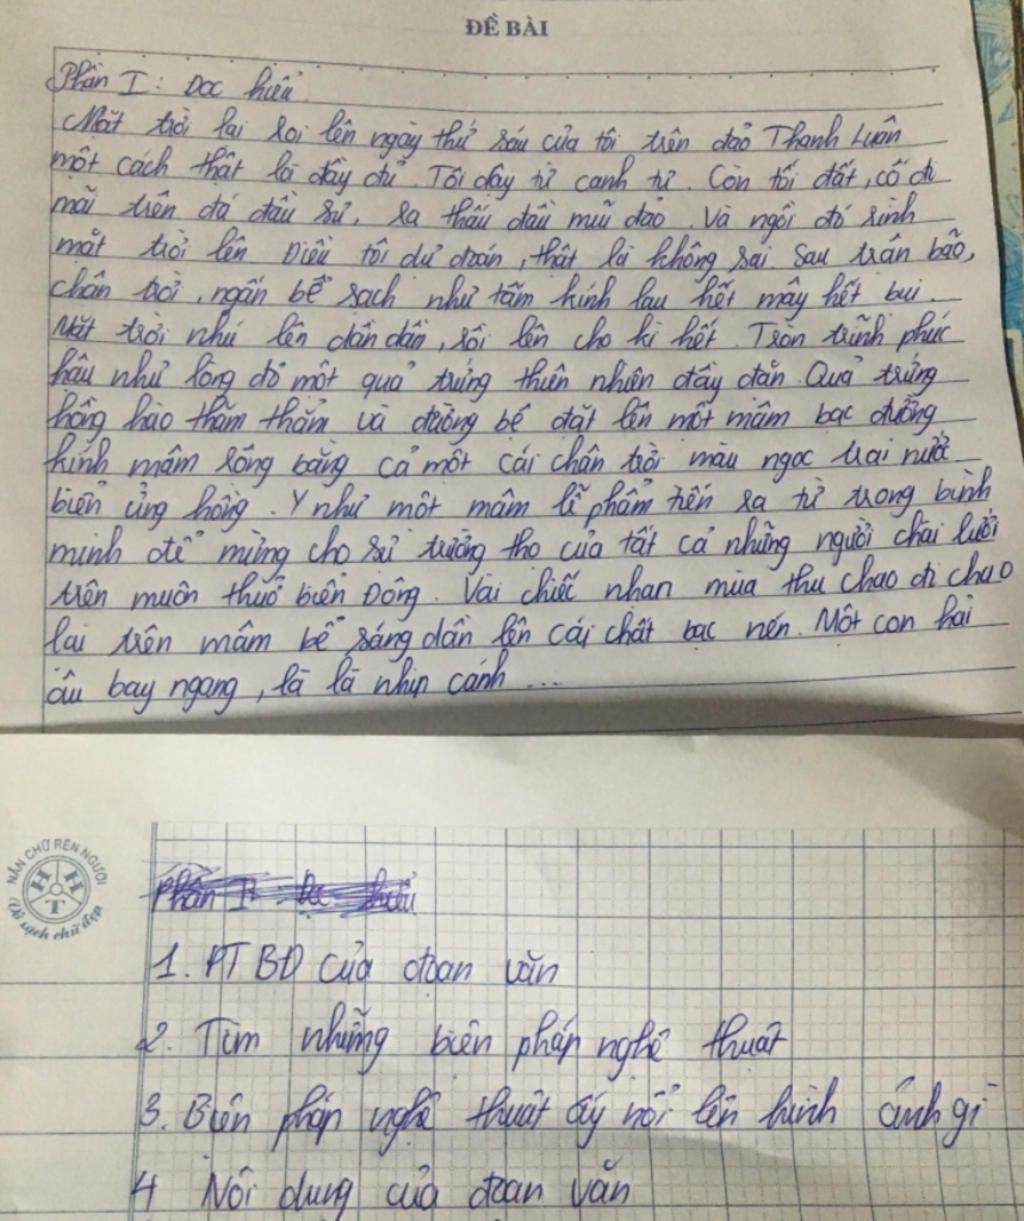 ĐỀ BÀI
Phần I: Đọc hiểu.
Mặt trời lại rọi lên ngày thứ sáu của tôi trên đảo Thanh Luân
một cách thật là đầy đủ. Tôi dậy từ canh tư. Còn tối đất, cố đi
mãi trên đá đầu sư, ra thấu đầu mũi đảo. Và ngồi đó rình
mặt trời lên. Điều tôi dự đoán, thật là không sai. Sau trận bão,
chân trời, ngấn bể sạch như tấm kính lau hết mây hết bụi.
Mặt trời nhú lên dần dần, rồi lên cho kì hết. Tròn trĩnh phúc
hậu như lòng đỏ một quả trứng thiên nhiên đầy đặn. Quả trứng
hồng hào thăm thẳm và đường bệ đặt lên một mâm bạc đường
kính mâm rộng bằng cả một cái chân trời màu ngọc trai nước
biển ửng hồng. Y như một mâm lễ phẩm tiến ra từ trong bình
minh để mừng cho sự trường thọ của tất cả những người chài lưới
trên muôn thuở biển Đông. Vài chiếc nhạn mùa thu chao đi chao
lại trên mâm bể sáng dần lên cái chất bạc nén. Một con hải
âu bay ngang, là là nhịp cánh ...
NẮN CHỮ RÈN NGƯỜI
H H
T
sạch chữ đẹp
Phần I: Đọc hiểu
1. PTBĐ của đoạn văn
2. Tìm những biện pháp nghệ thuật
3. Biện pháp nghệ thuật ấy nổi lên hình ảnh gì
4 Nội dung của đoạn văn